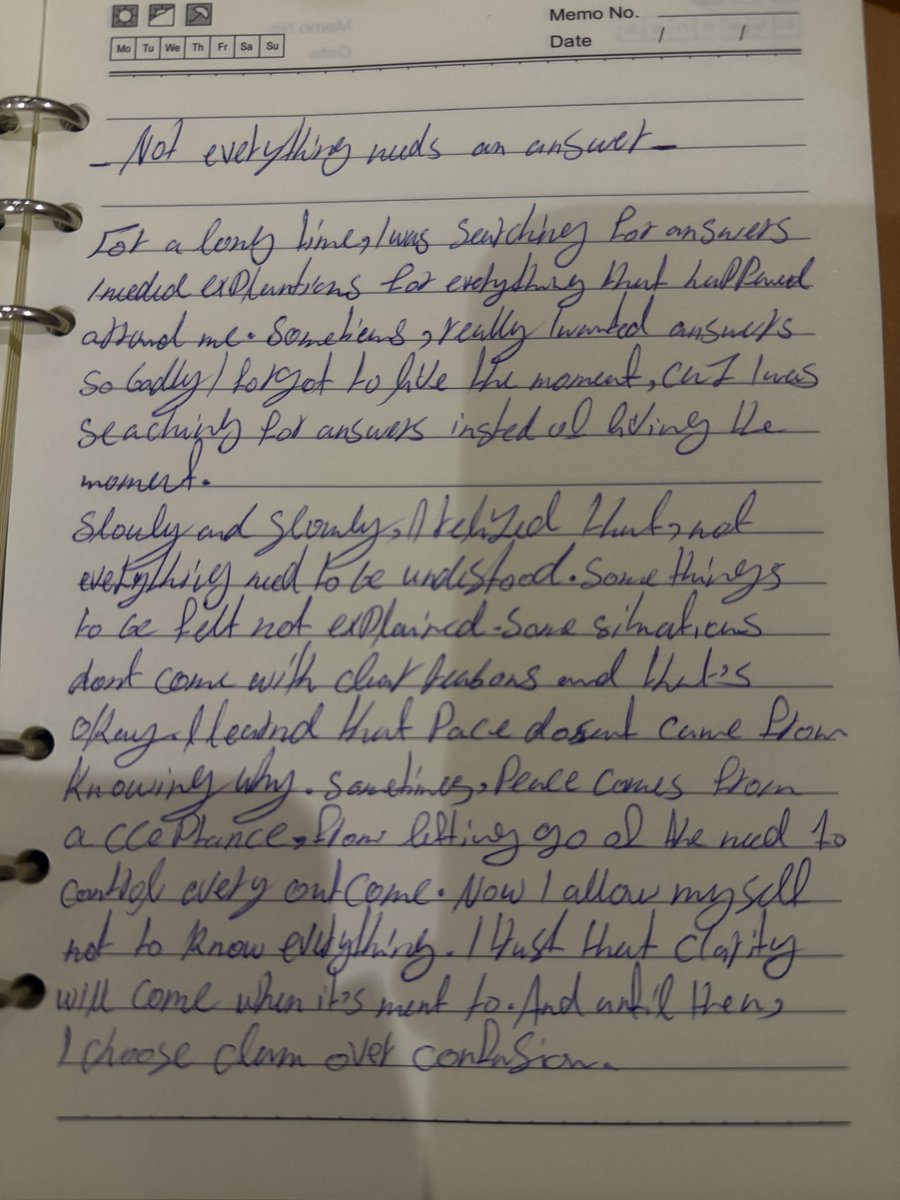 Memo No.
Mo Tu We Th Fr Sa Su
Date / /
- Not everything needs an answer -
For a long time, I was searching for answers
I needed explantions for everything that happened
around me. Sometiems, really I wanted answers
so badly I forgot to live the moment, I was
seaching for answers insted of living the
moment.
Slowly and slowly, I relized that, not
everything need to be understood. Some things
to be felt not explained. Some situations
dont come with clear reasons and that's
okay. I learnd that Pace dosent came from
knowing why. Sometimes, Peace comes from
acceptance, from letting go of the need to
control every outcome. Now I allow myself
not to know everything. I trust that clarity
will come when it's ment to. And until then,
I choose clam over confusion.